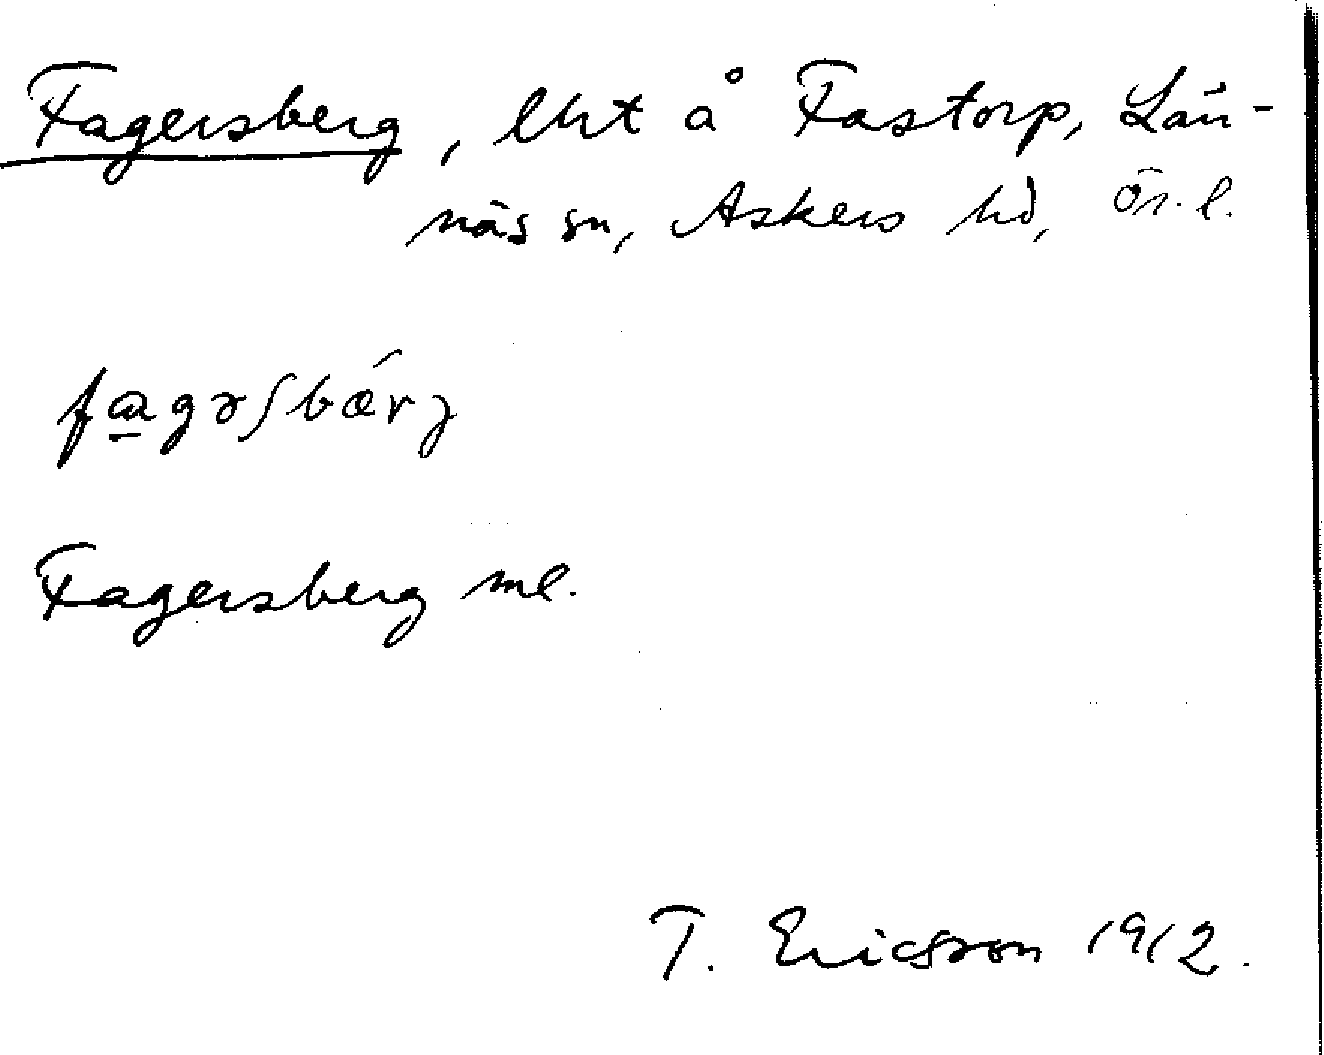 Fagersberg, lht å Fastorp, Län-
näs sn, Askers hd, Ör. l.
fagəʃbärj
Fagersberg ml.
T. Ericsson 1912.